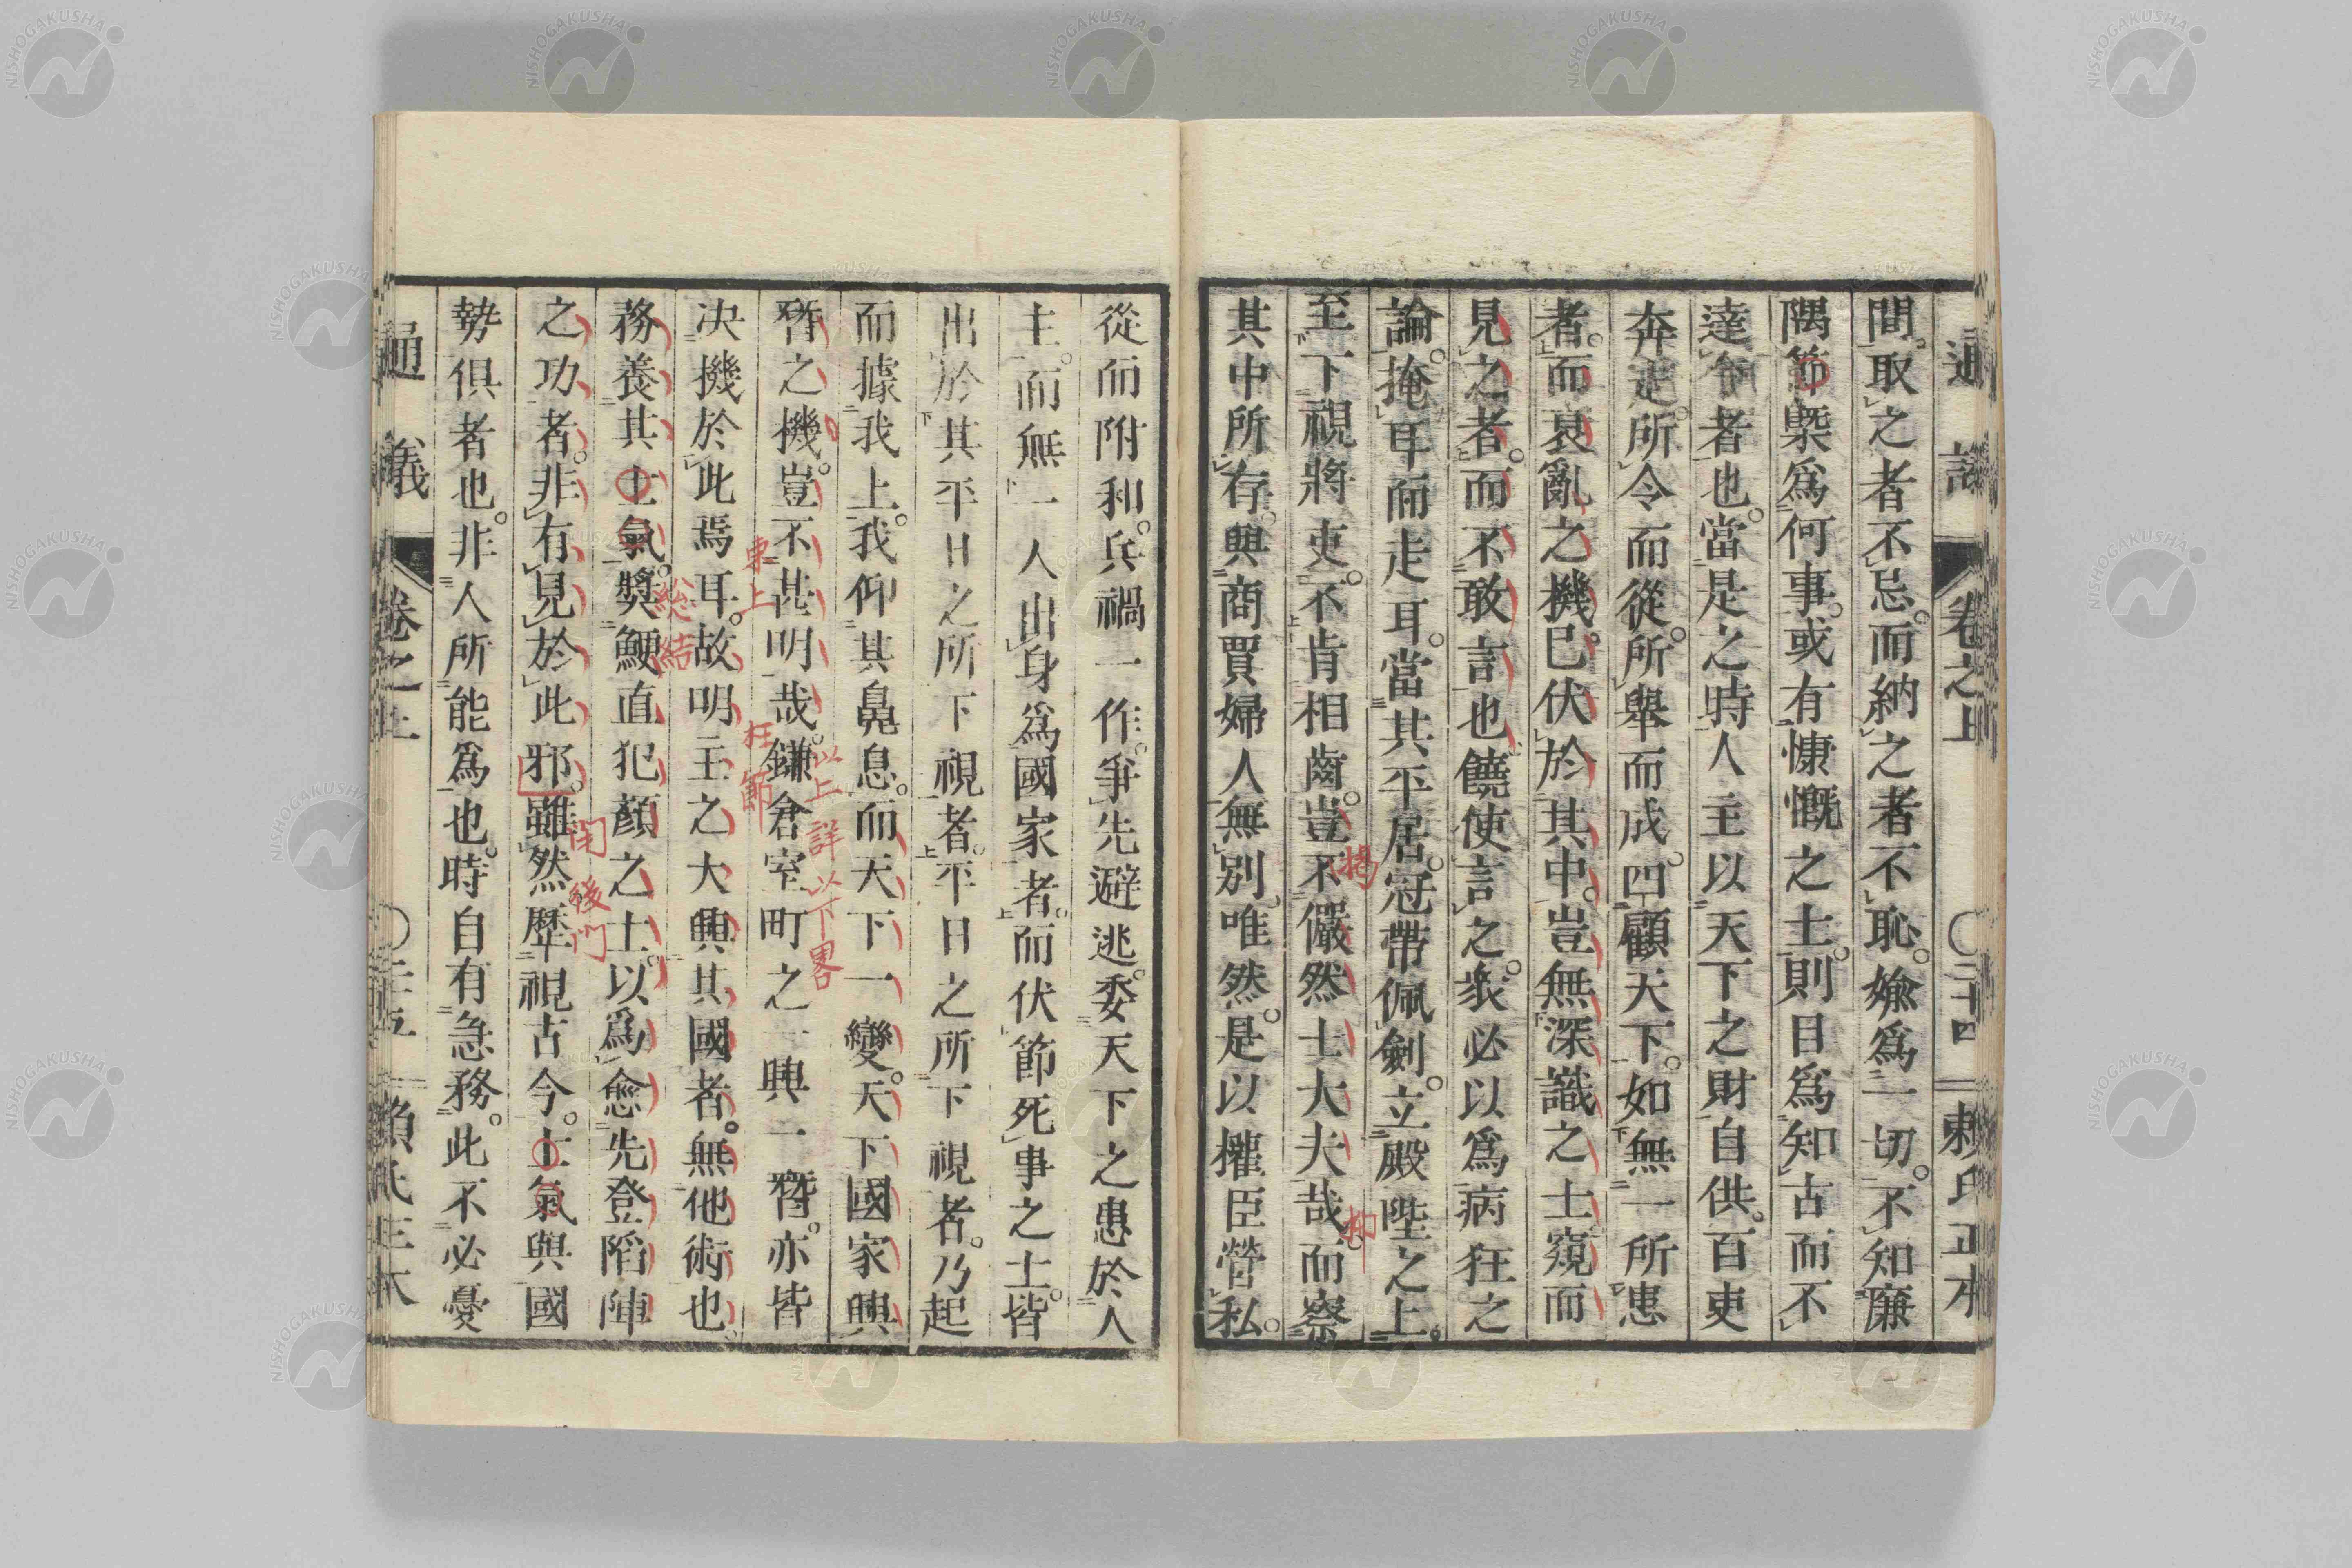 通議 卷之上 〇三十四 賴氏正本
間。取之者不忌。而納之者不恥。媮爲一切。不知廉
隅節槩爲何事。或有慷慨之士。則目爲知古而不
達今者也。當是之時。人主以天下之財自供。百吏
奔走。所令而從。所舉而成。四顧天下。如無一所患
者。而衰亂之機已伏於其中。豈無深識之士窺而
見之者。而不敢言也。饒使言之。衆必以爲病狂之
論。掩耳而走耳。當其平居。冠帶佩劍。立殿陛之上。
至下視將吏。不肯相齒。豈不儼然士大夫哉。而察
其中所存。與商賈婦人無別。唯然。是以權臣營私。
揚
抑
從而附和。兵禍一作。爭先避逃。委天下之患於人
主。而無一人出身爲國家者。而伏節死事之士。皆
出於其平日之所下視者。平日之所下視者。乃起
而據我上。我仰其鼻息。而天下一變。天下國家興
暦之機。豈不甚明哉。鎌倉室町之一興一暦。亦皆
決機於此焉耳。故明主之大興其國者。無他術也。
務養其士氣。獎鯁直犯顏之士。以爲愈先登陷陣
之功者。非有見於此邪。雖然歷視古今。士氣與國
勢俱者也。非人所能爲也。時自有急務。此不必憂
以上詳以下畧
束上
柱節
總結
開後門
通議 卷之上 〇三十五 賴氏正本